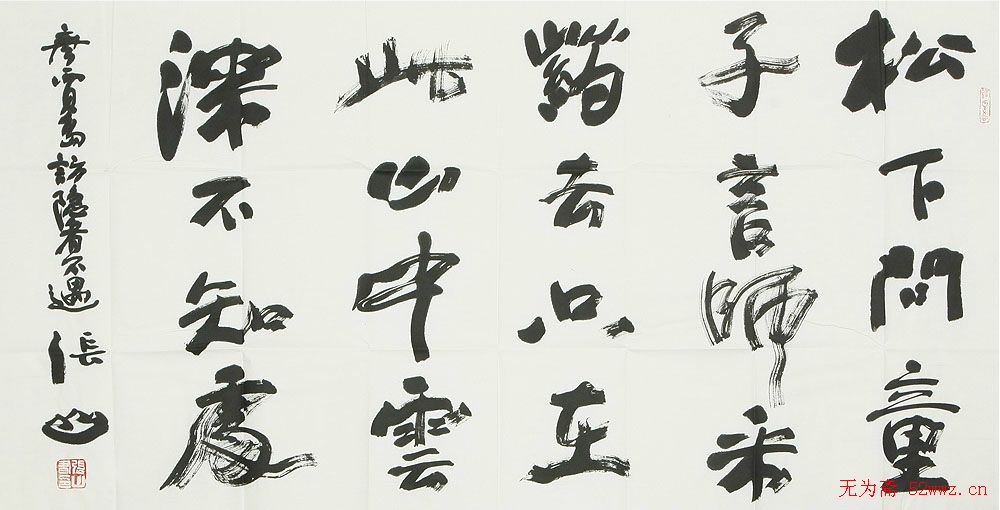 松下問童
子言師采
药去只在
此山中雲
深不知處
唐賈島訪隐者不遇 張山
无为斋 52wwz.cn